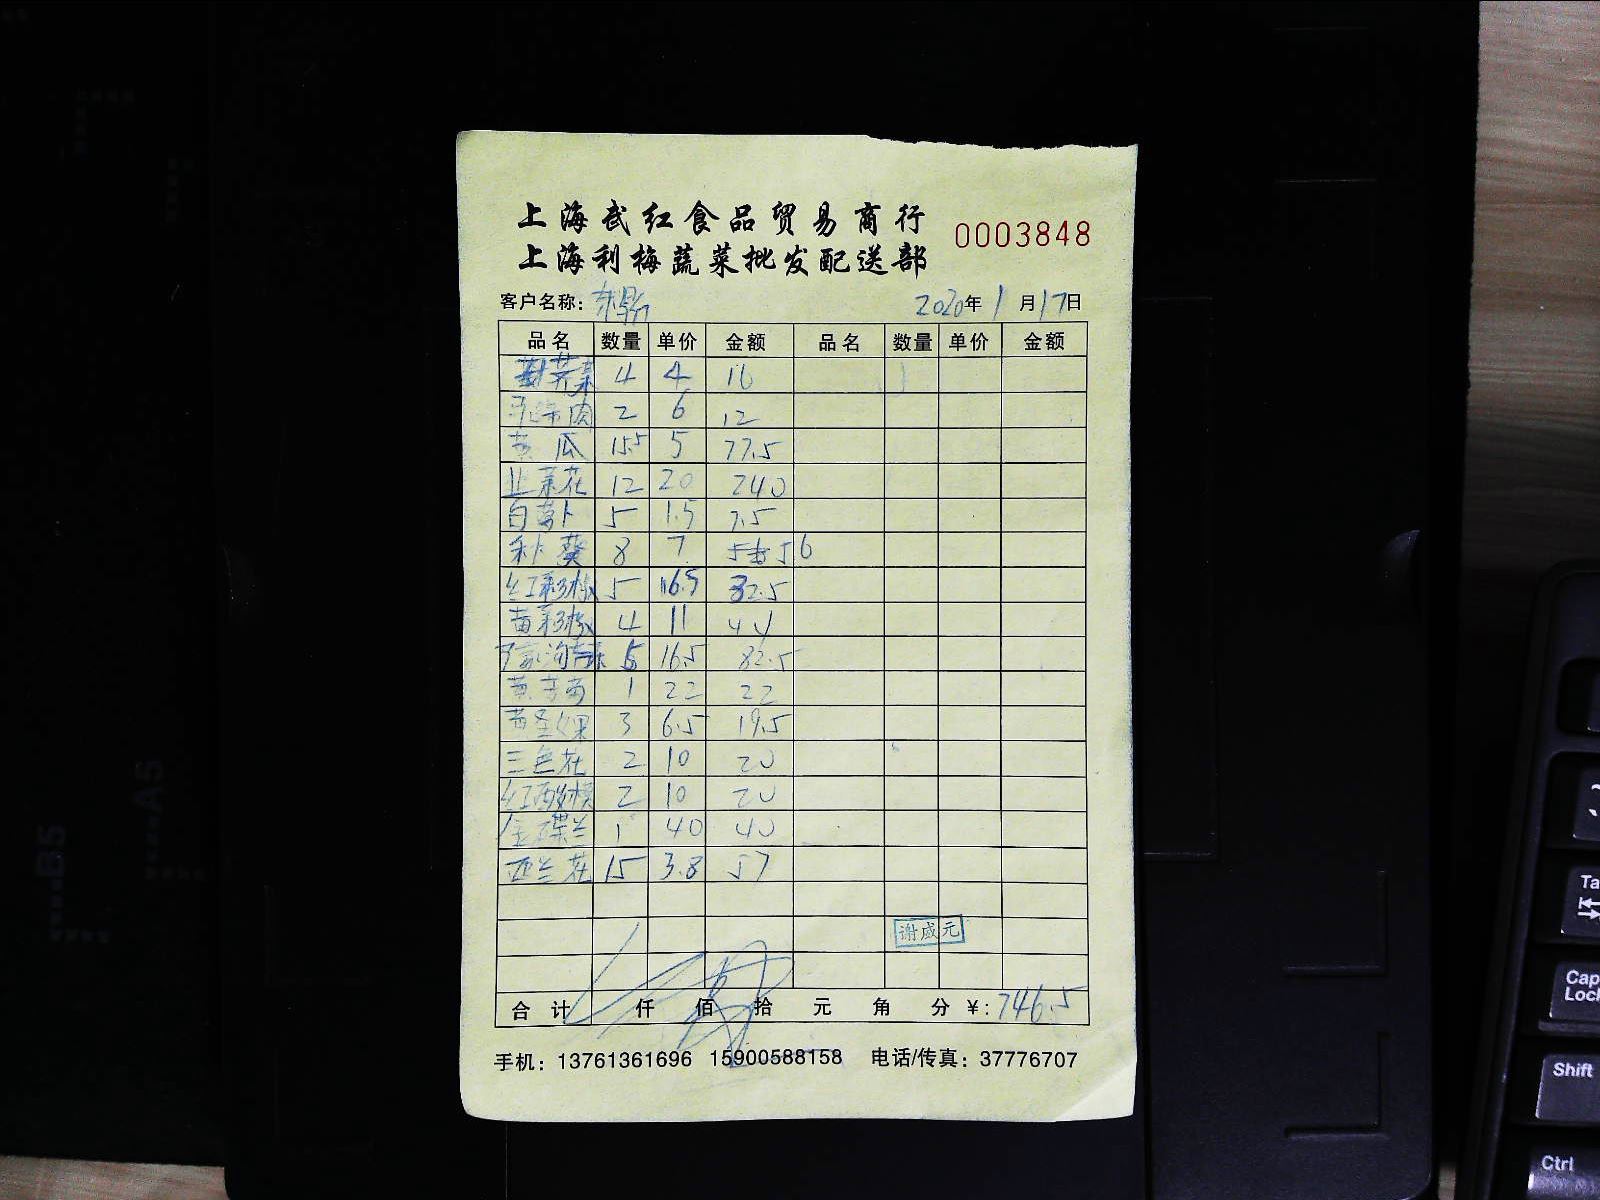 上海武红食品贸易商行
0003848
上海利梅蔬菜批发配送部
客户名称: 2020年1月17日
品名 数量 单价 金额 品名 数量 单价 金额
荠菜 4 4 16
马蹄肉 2 6 12
黄瓜 15.5 5 77.5
韭菜花 12 20 240
白萝卜 5 1.5 7.5
秋葵 8 7 56
红彩椒 5 16.5 82.5
黄彩椒 4 11 44
5 16.5 82.5
黄 1 22 22
黄圣女果 3 6.5 19.5
三色花 2 10 20
红酸模 2 10 20
金碟兰 1 40 40
西兰花 15 3.8 57
谢成元
合计 仟 佰 拾 元 角 分 ¥: 746.5
手机: 13761361696 15900588158 电话/传真: 37776707
B5
A5
Tab
Caps Lock
Shift
Ctrl